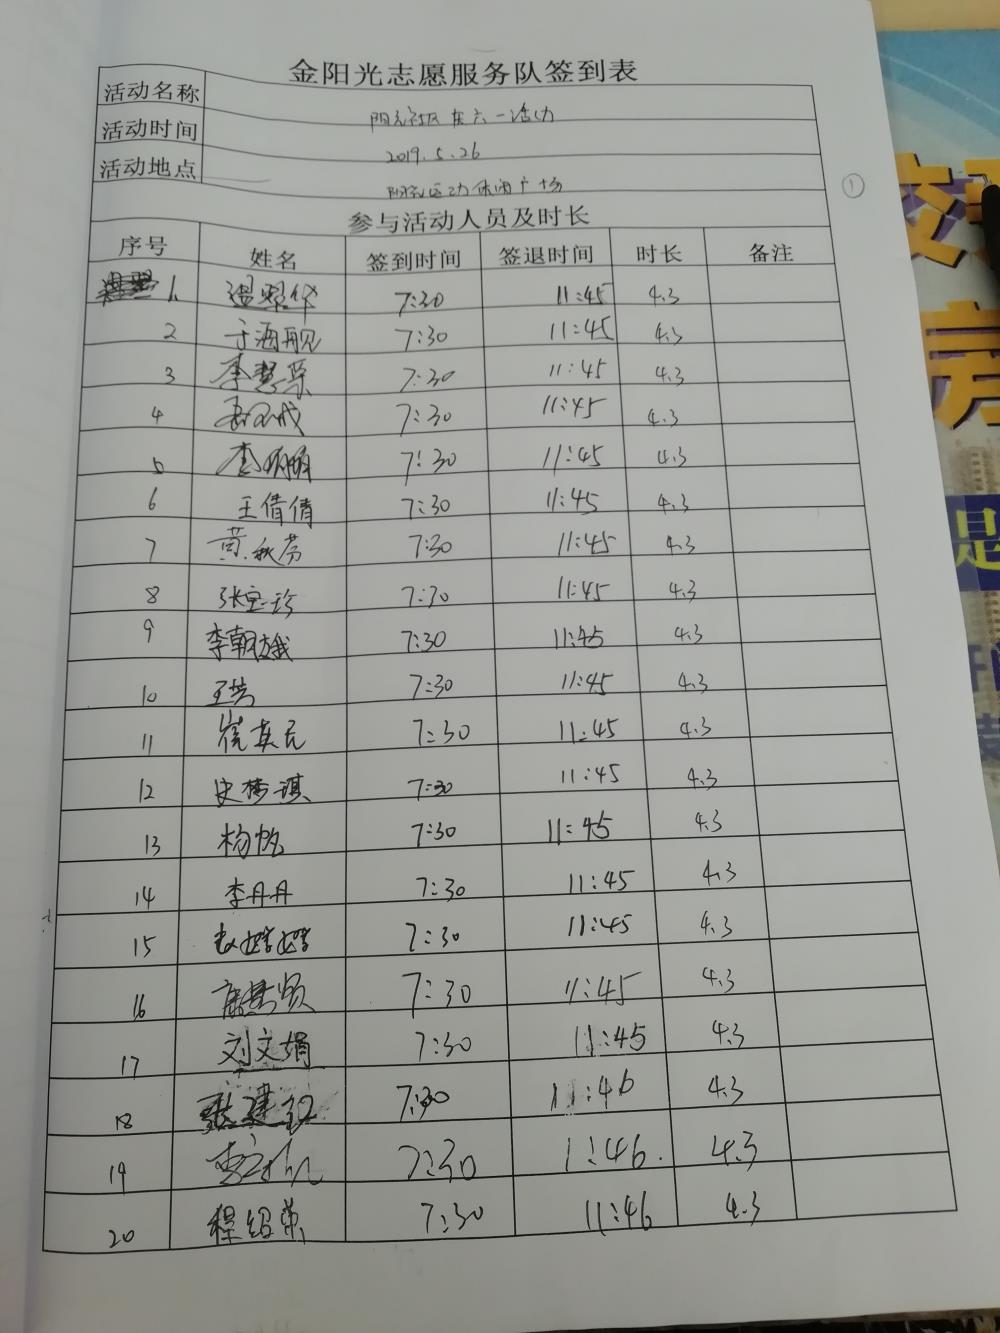 金阳光志愿服务队签到表
活动名称 阳光社区庆六一活动
活动时间 2019.5.26
活动地点 阳光运动休闲广场
①
参与活动人员及时长
序号 姓名 签到时间 签退时间 时长 备注
1 7:30 11:45 4.3
2 于海舰 7:30 11:45 4.3
3 李慧荣 7:30 11:45 4.3
4 7:30 11:45 4.3
5 李明明 7:30 11:45 4.3
6 王倩倩 7:30 11:45 4.3
7 黄秋芬 7:30 11:45 4.3
8 张宝珍 7:30 11:45 4.3
9 李朝娥 7:30 11:45 4.3
10 7:30 11:45 4.3
11 崔英元 7:30 11:45 4.3
12 史梦琪 7:30 11:45 4.3
13 杨帆 7:30 11:45 4.3
14 李丹丹 7:30 11:45 4.3
15 赵婧婧 7:30 11:45 4.3
16 7:30 11:45 4.3
17 刘文娟 7:30 11:45 4.3
18 张建红 7:30 11:46 4.3
19 7:30 11:46. 4.3
20 程绍荣 7:30 11:46 4.3
是